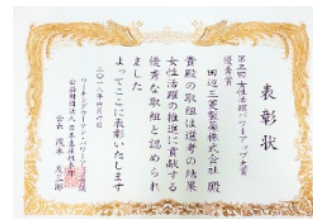 表彰状
第三回 女性活躍パワーアップ大賞
優秀賞
田辺三菱製薬株式会社 殿
貴殿の取組は選考の結果
女性活躍の推進に貢献する
優秀な取組と認められ
ました
よってここに表彰いたします
二〇一八年
ワーキングウーマン・パワーアップ会議
公益財団法人日本生産性本部
会長 茂木友三郎